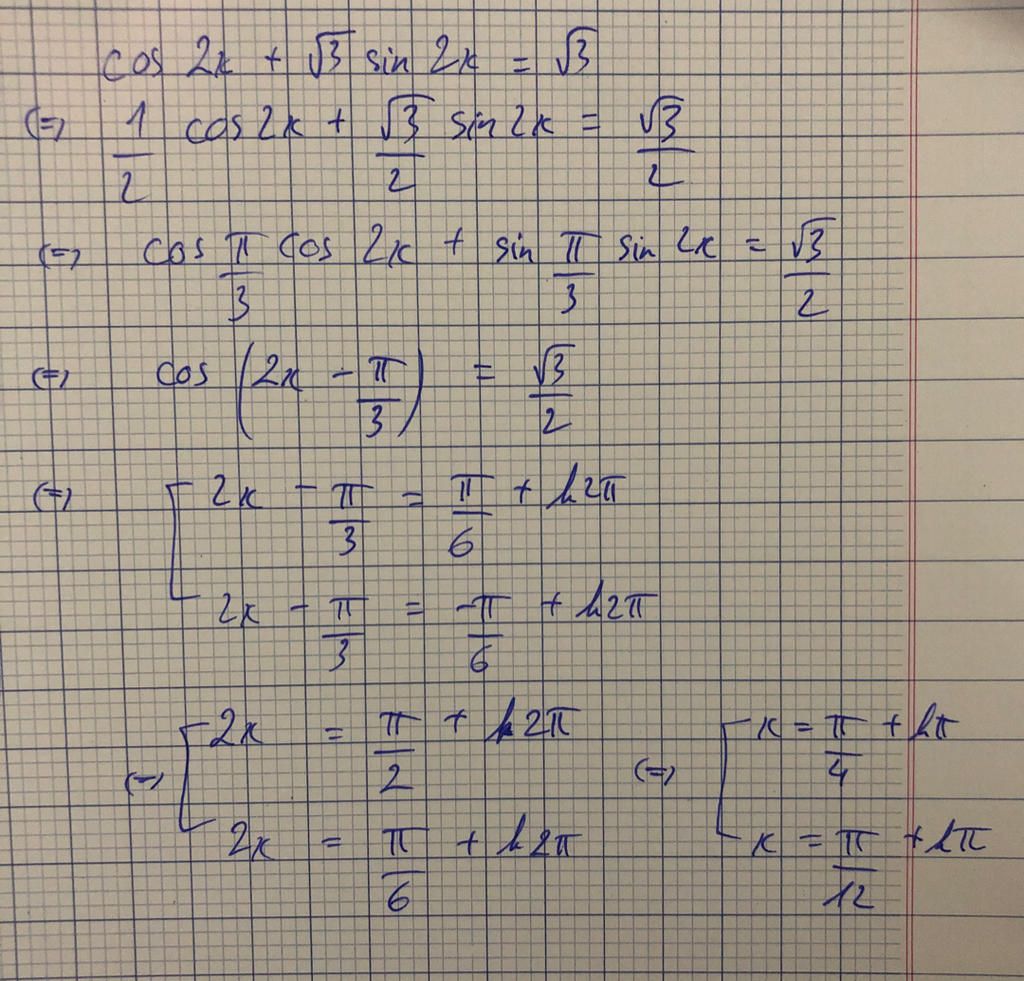 cos 2x + √3 sin 2x = √3
(=) 1/2 cos 2x + √3/2 sin 2x = √3/2
(=) cos π/3 cos 2x + sin π/3 sin 2x = √3/2
(=) cos (2x - π/3) = √3/2
(=) [ 2x - π/3 = π/6 + k2π
2x - π/3 = -π/6 + k2π
(=) [ 2x = π/2 + k2π (=) [ x = π/4 + kπ
2x = π/6 + k2π x = π/12 + kπ